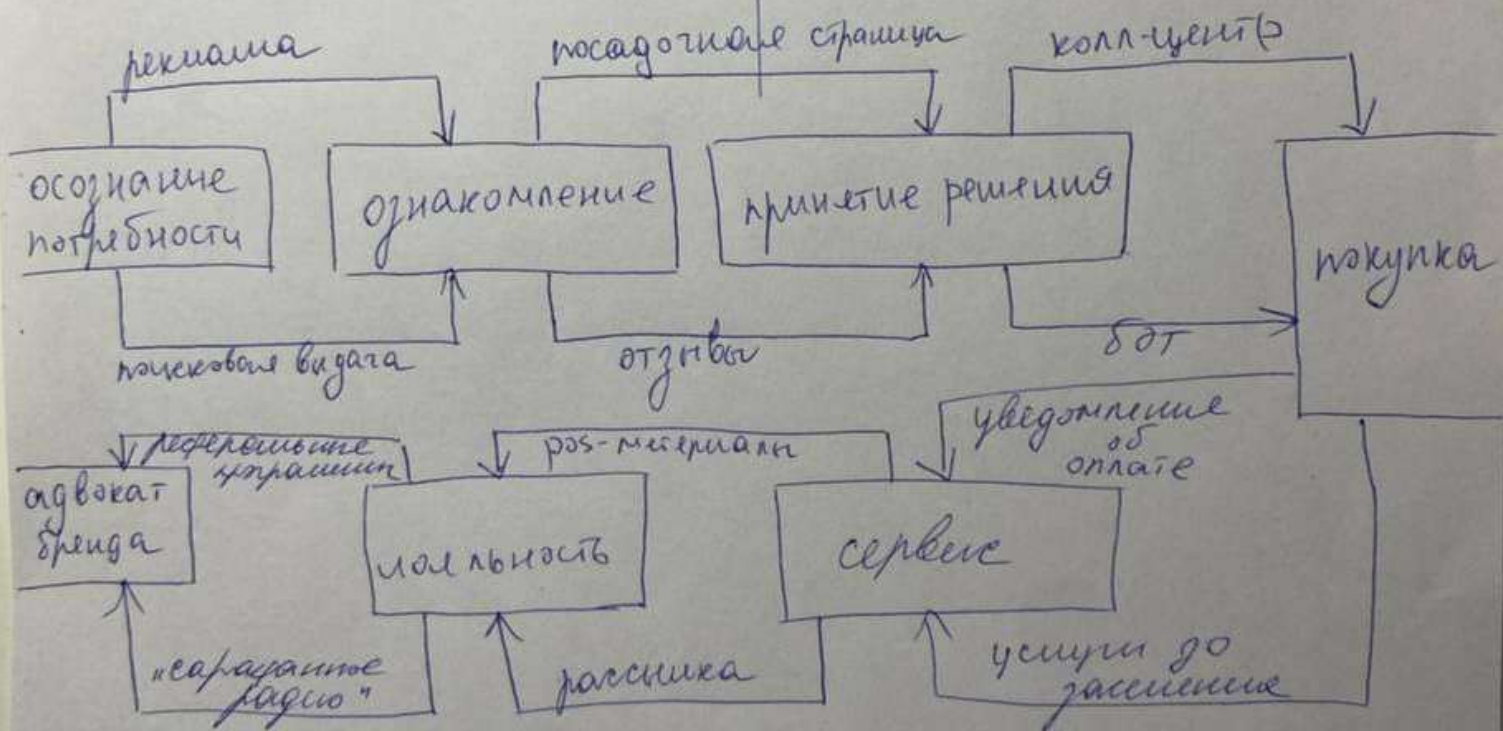 реклама
посадочная страница
колл-центр
осознание
потребности
ознакомление
принятие решения
покупка
поисковая выдача
отзывы
бот
уведомление
об
оплате
реферальные
программы
pos-материалы
адвокат
бренда
лояльность
сервис
"сарафанное
радио"
рассылка
услуги до
заселения